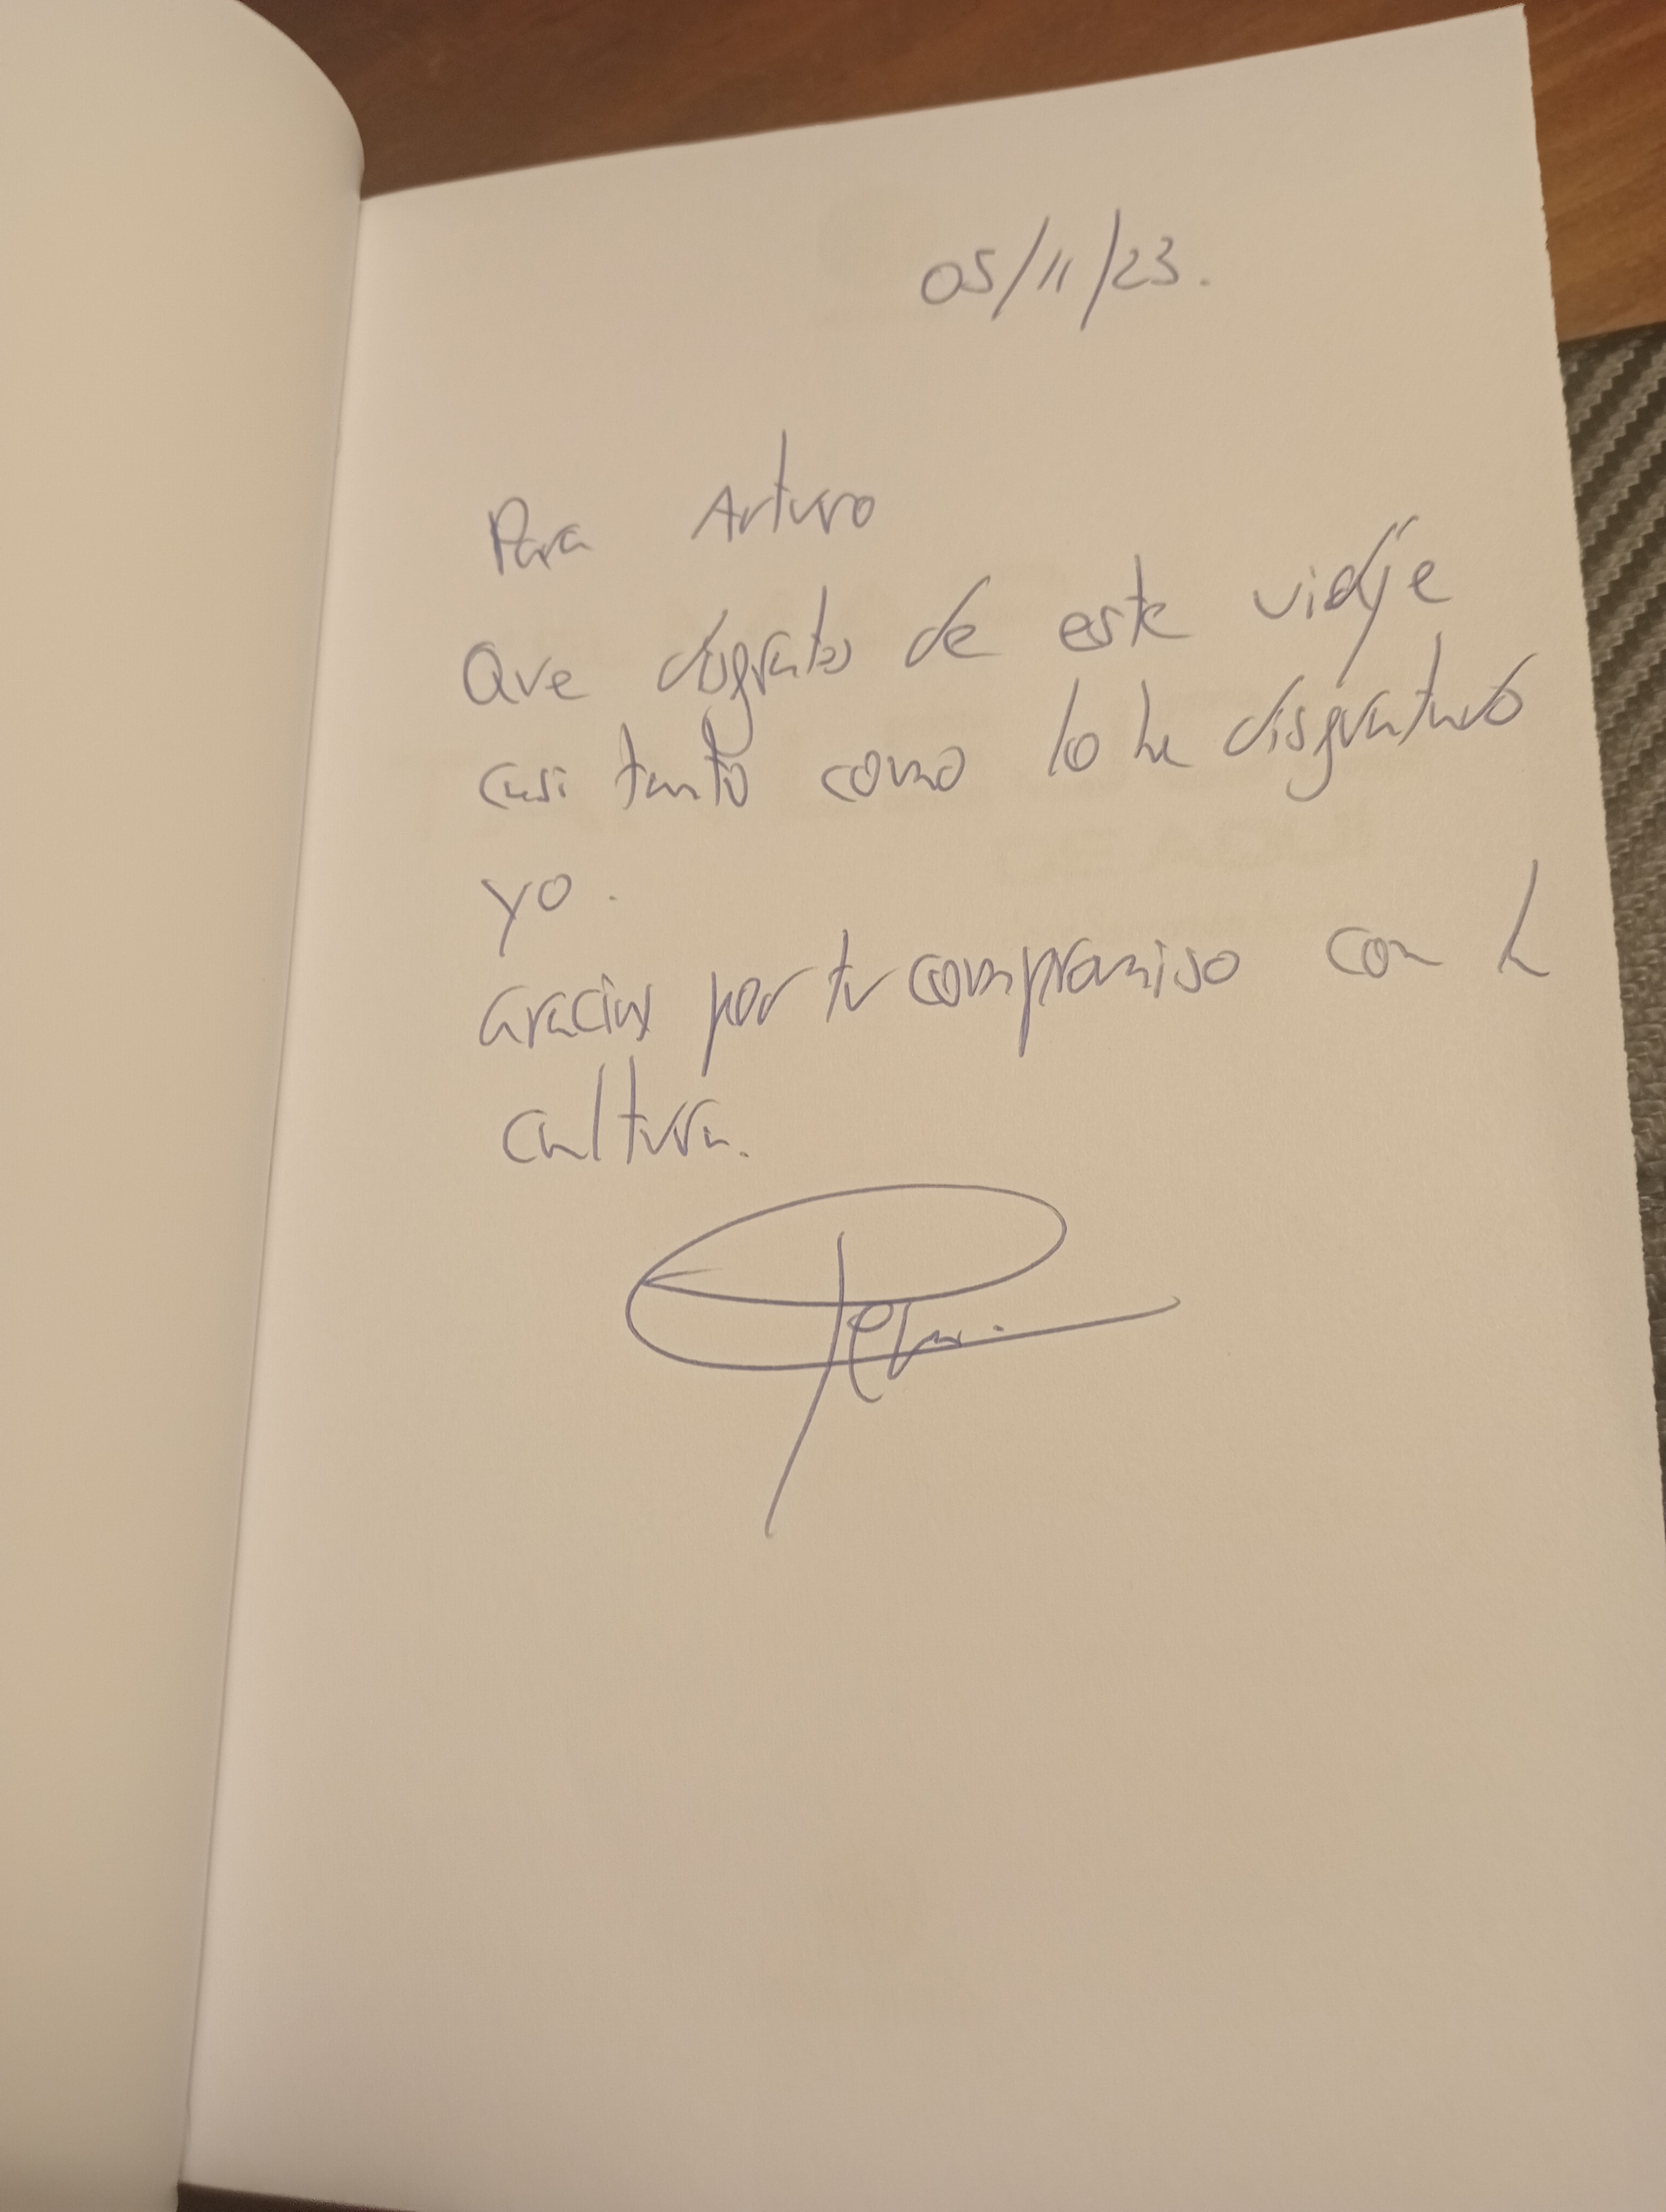 05/11/23.
Para Arturo
Que disfrutes de este viaje
casi tanto como lo he disfrutado
yo.
Gracias por tu compromiso con la
cultura.